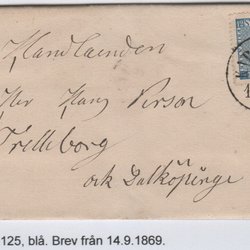 Handlanden
Herr Hans Person
Trelleborg
och Dalköpinge
125, blå. Brev från 14.9.1869.